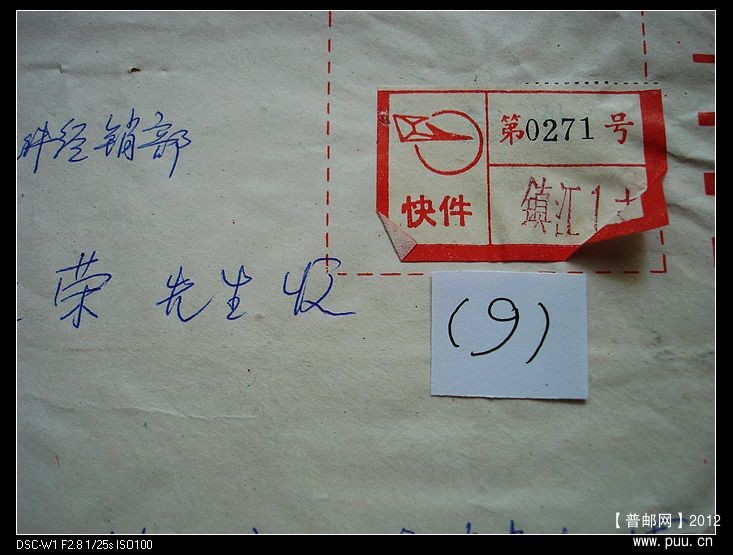 第0271号
件经销部
快件
镇江1
荣 先生 收
(9)
【普邮网】2012
www.puu.cn
DSC-W1 F2.8 1/25s ISO100